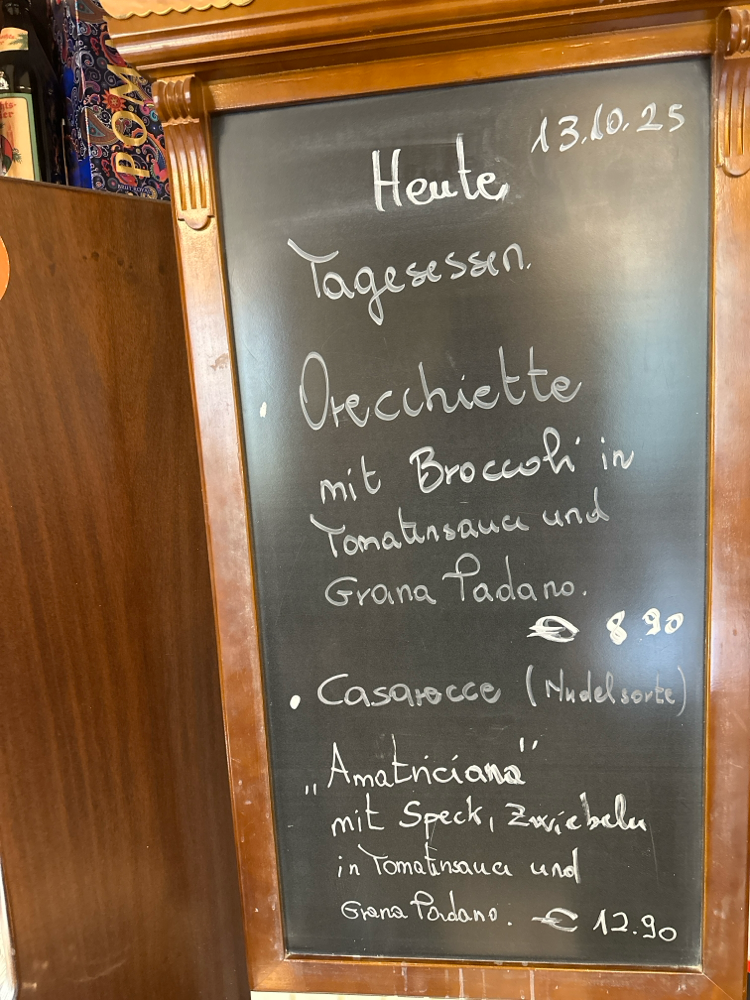 POM
13.10.25
Heute
Tagesessen.
Orecchiette
mit Broccoli in
Tomatensauce und
Grana Padano.
€ 8.90
• Casarecce (Nudelsorte)
„Amatriciana"
mit Speck, Zwiebeln
in Tomatensauce und
Grana Padano. € 12.90